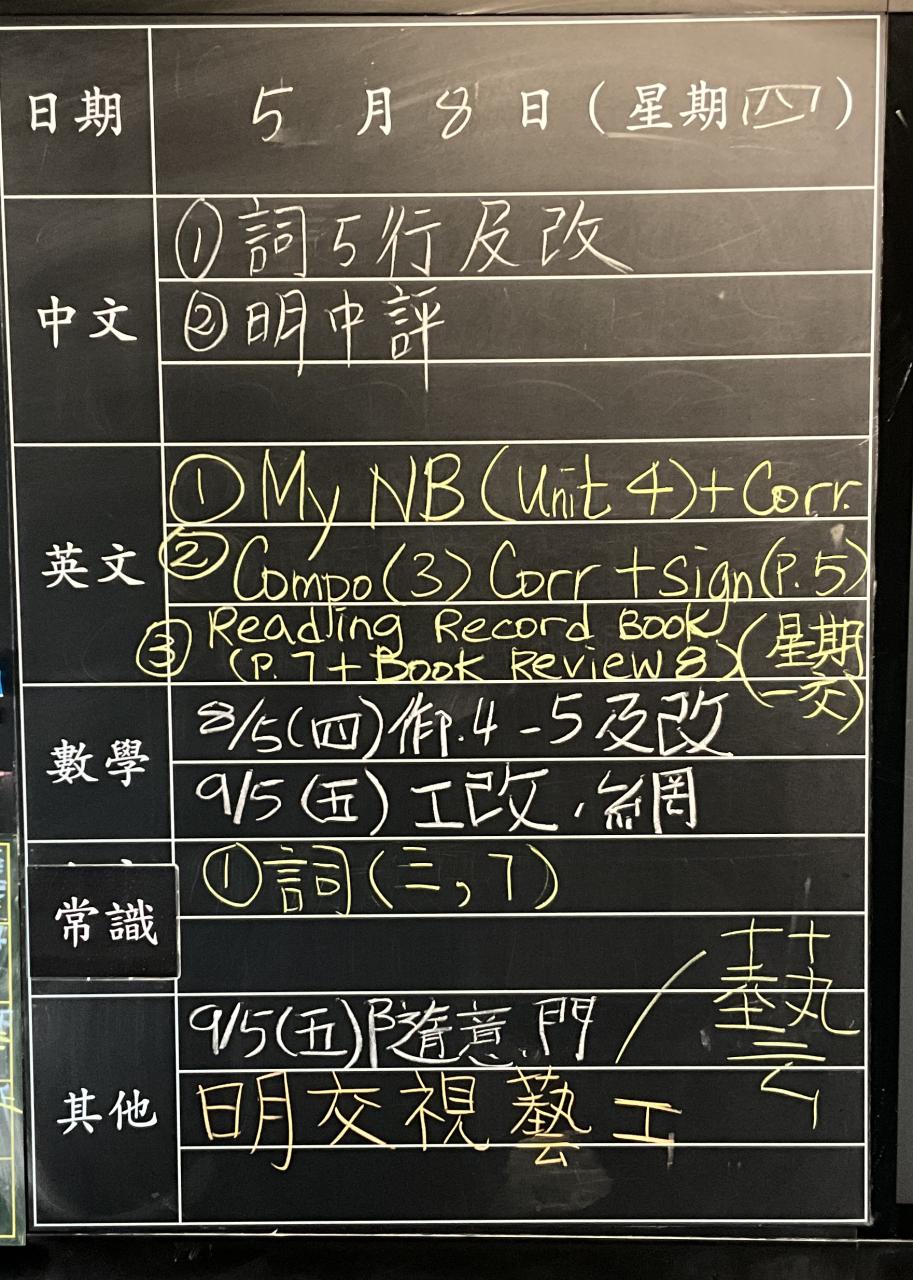 日期 5 月 8 日 (星期四)
中文
① 詞 5 行 及 改
② 明 中 評
英文
① My NB (Unit 4) + Corr.
② Compo (3) Corr + Sign (P. 5)
③ Reading Record Book
(P. 7 + Book Review 8) (星期一交)
數學
8/5 (四) P.4 - 5 及改
9/5 (五) 工改、網
常識
① 詞 (三, 7)
其他
9/5 (五) 隨意門
明交視藝工